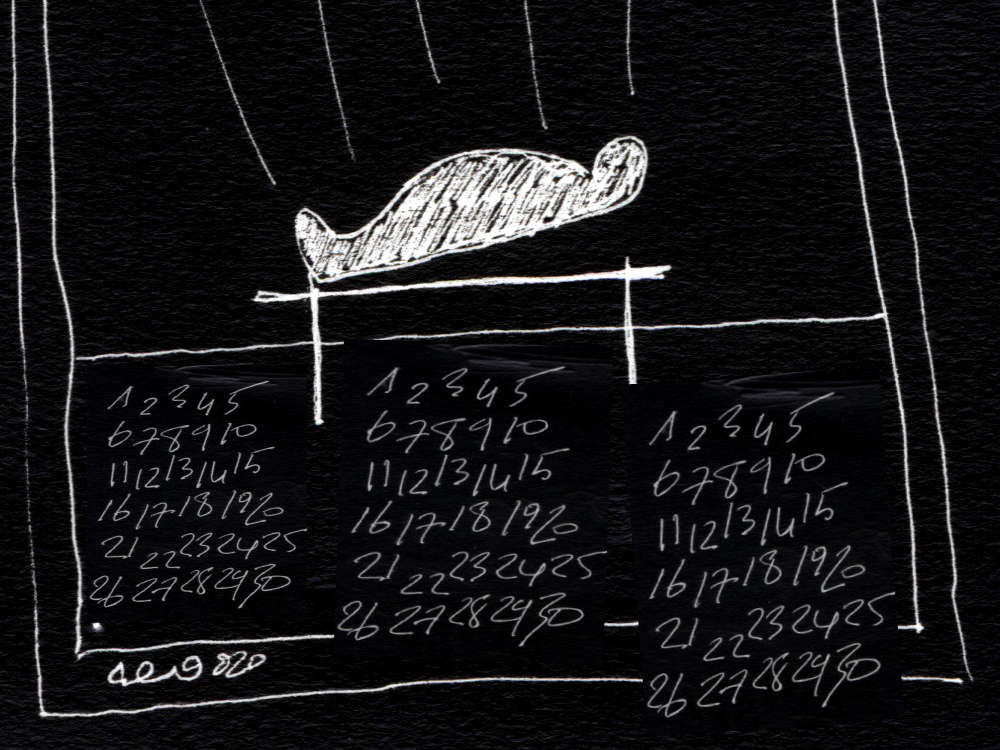 1 2 3 4 5
6 7 8 9 10
11 12 13 14 15
16 17 18 19 20
21 22 23 24 25
26 27 28 29 30
1 2 3 4 5
6 7 8 9 10
11 12 13 14 15
16 17 18 19 20
21 22 23 24 25
26 27 28 29 30
1 2 3 4 5
6 7 8 9 10
11 12 13 14 15
16 17 18 19 20
21 22 23 24 25
26 27 28 29 30
020